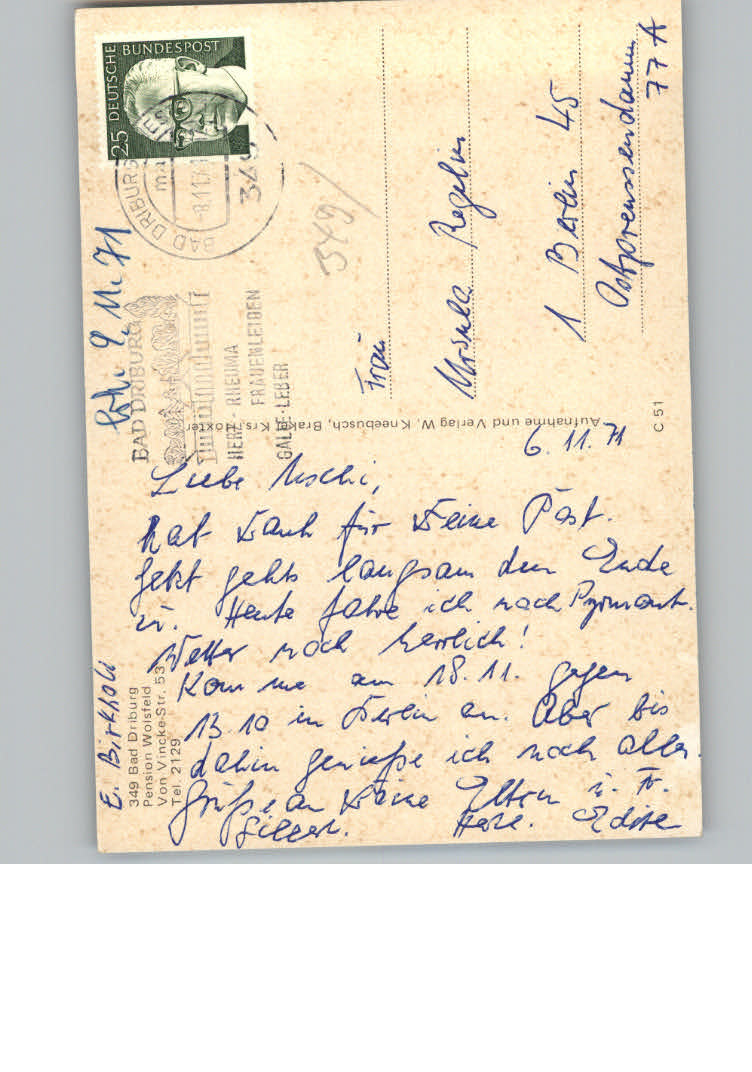 DEUTSCHE BUNDESPOST
25
BAD DRIBURG
349
BAD DRIBURG
HERZ - RHEUMA
FRAUENLEIDEN
GALLE-LEBER
349
Frau
Ursula Regelin
1 Berlin 45
Ostpreussendamm
77 A
Aufnahme und Verlag W. Kneebusch, Brakel Krs. Höxter
C 51
6.11.71
Liebe Uschi,
hab Dank für Deine Post.
Jetzt gehts langsam dem Ende
zu. Heute fahre ich nach Pyrmont.
Wetter noch herrlich!
Komme am 18.11. gegen
13.10 in Berlin an. Aber bis
dahin genieße ich noch alles.
Grüße an Deine Eltern u. Fr.
Herzl. Edith
E. Birkholz
349 Bad Driburg
Pension Wolsfeld
Von Vincke-Str. 53
Tel. 2129